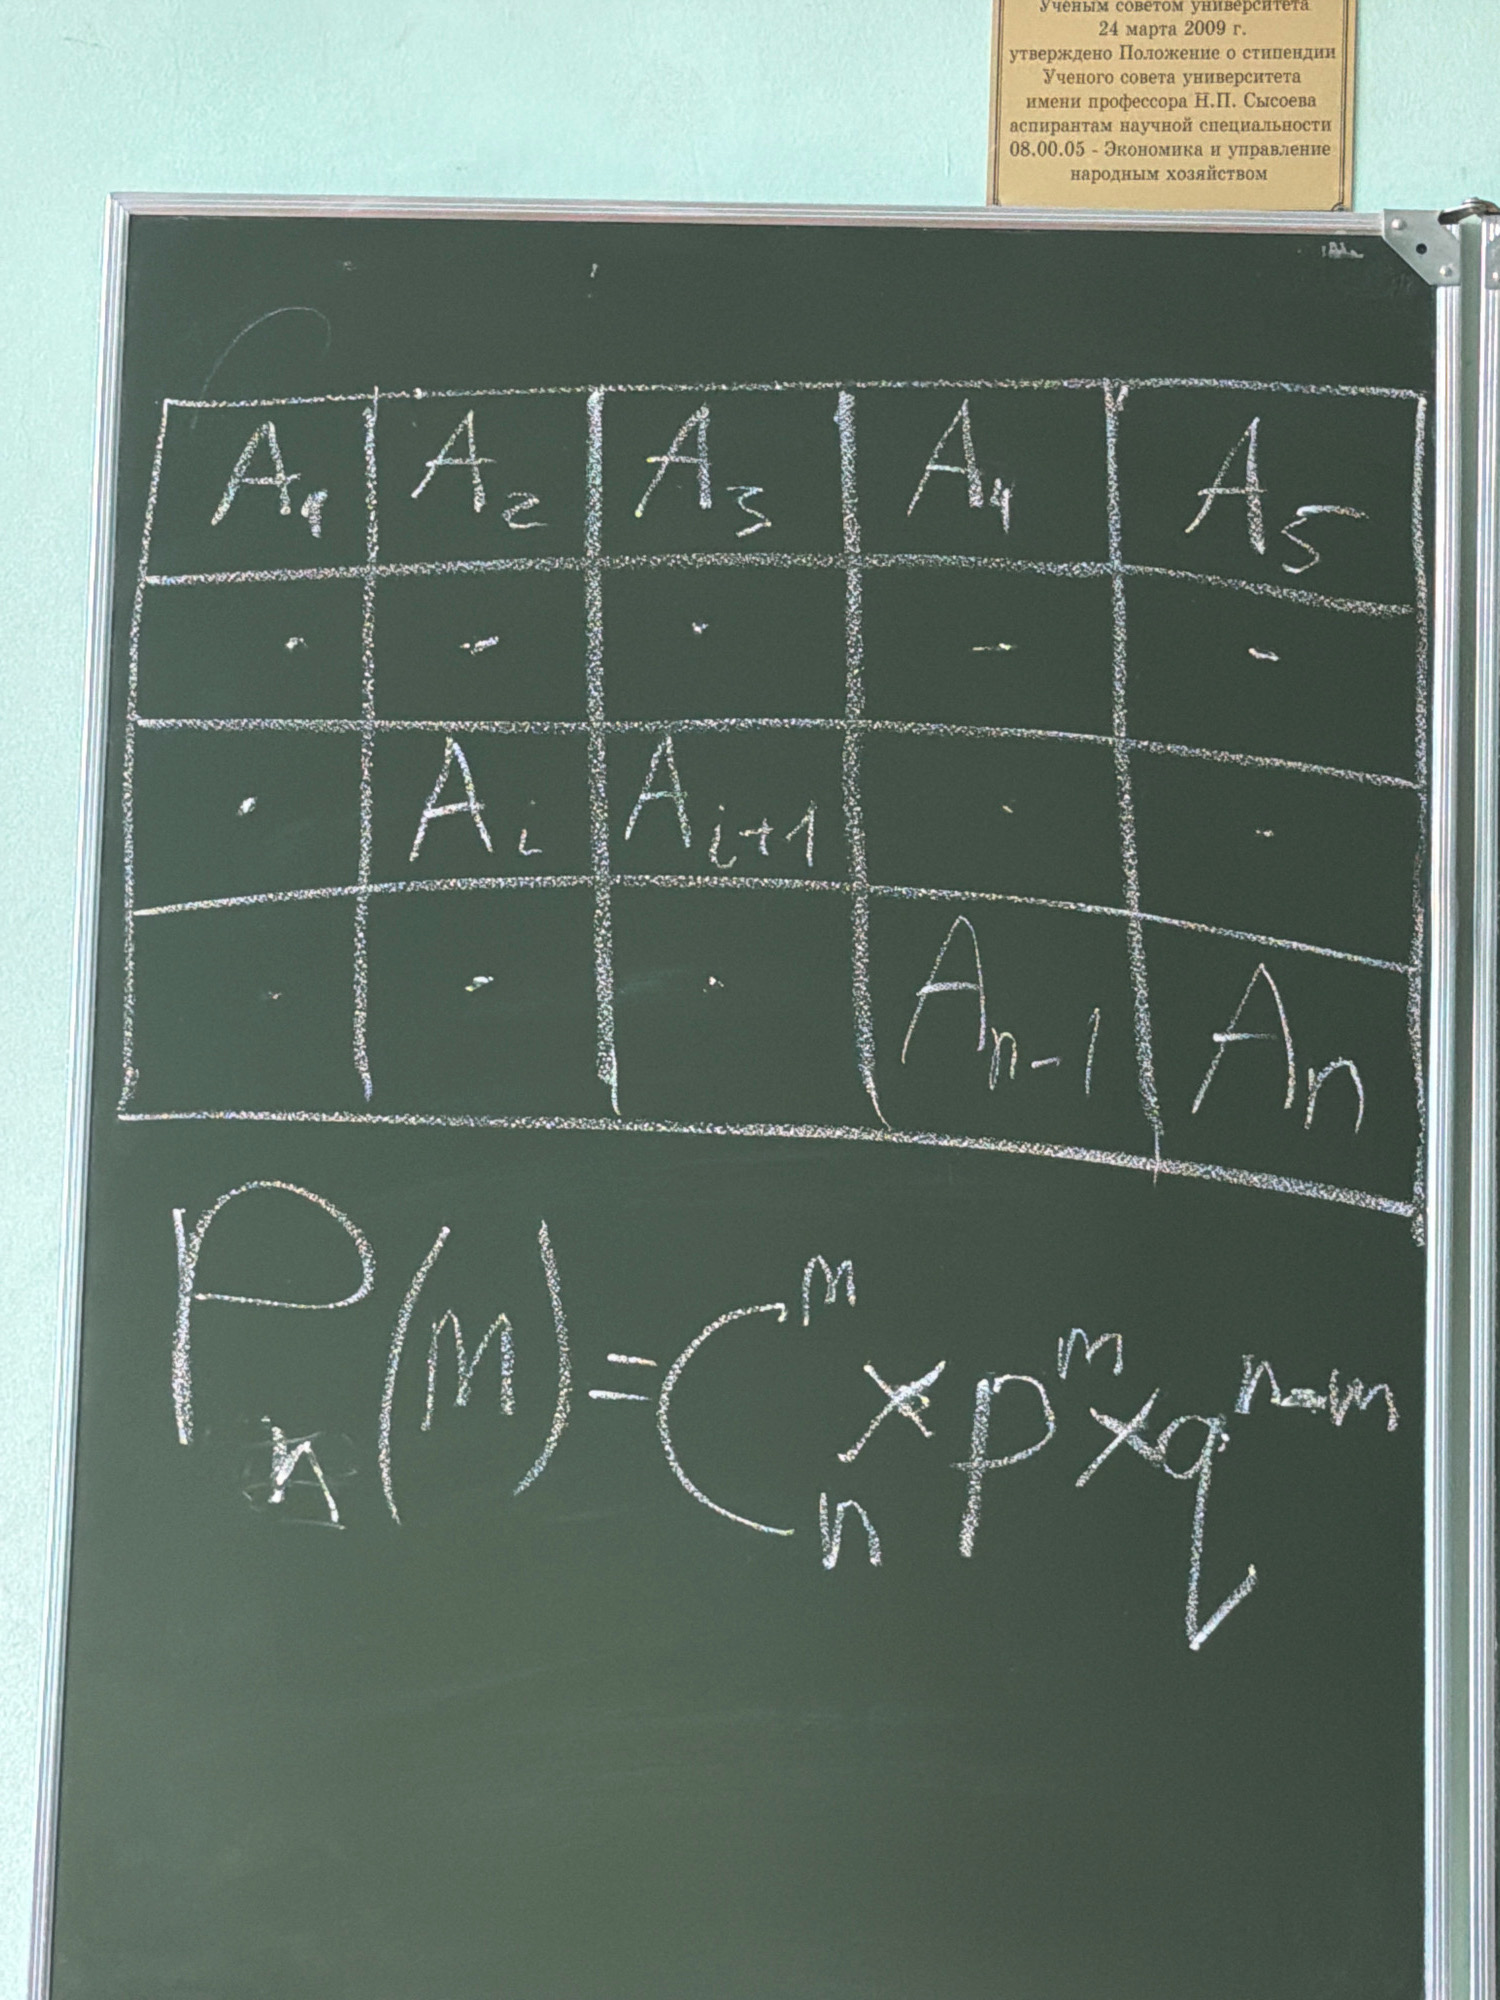 Ученым советом университета
24 марта 2009 г.
утверждено Положение о стипендии
Ученого совета университета
имени профессора Н.П. Сысоева
аспирантам научной специальности
08.00.05 - Экономика и управление
народным хозяйством
A₁ A₂ A₃ A₄ A₅
. - . - -
. Aᵢ Aᵢ₊₁ . .
. . . Aₙ₋₁ Aₙ
Pₙ(m) = Cₙᵐ × pᵐ × qⁿ⁻ᵐ